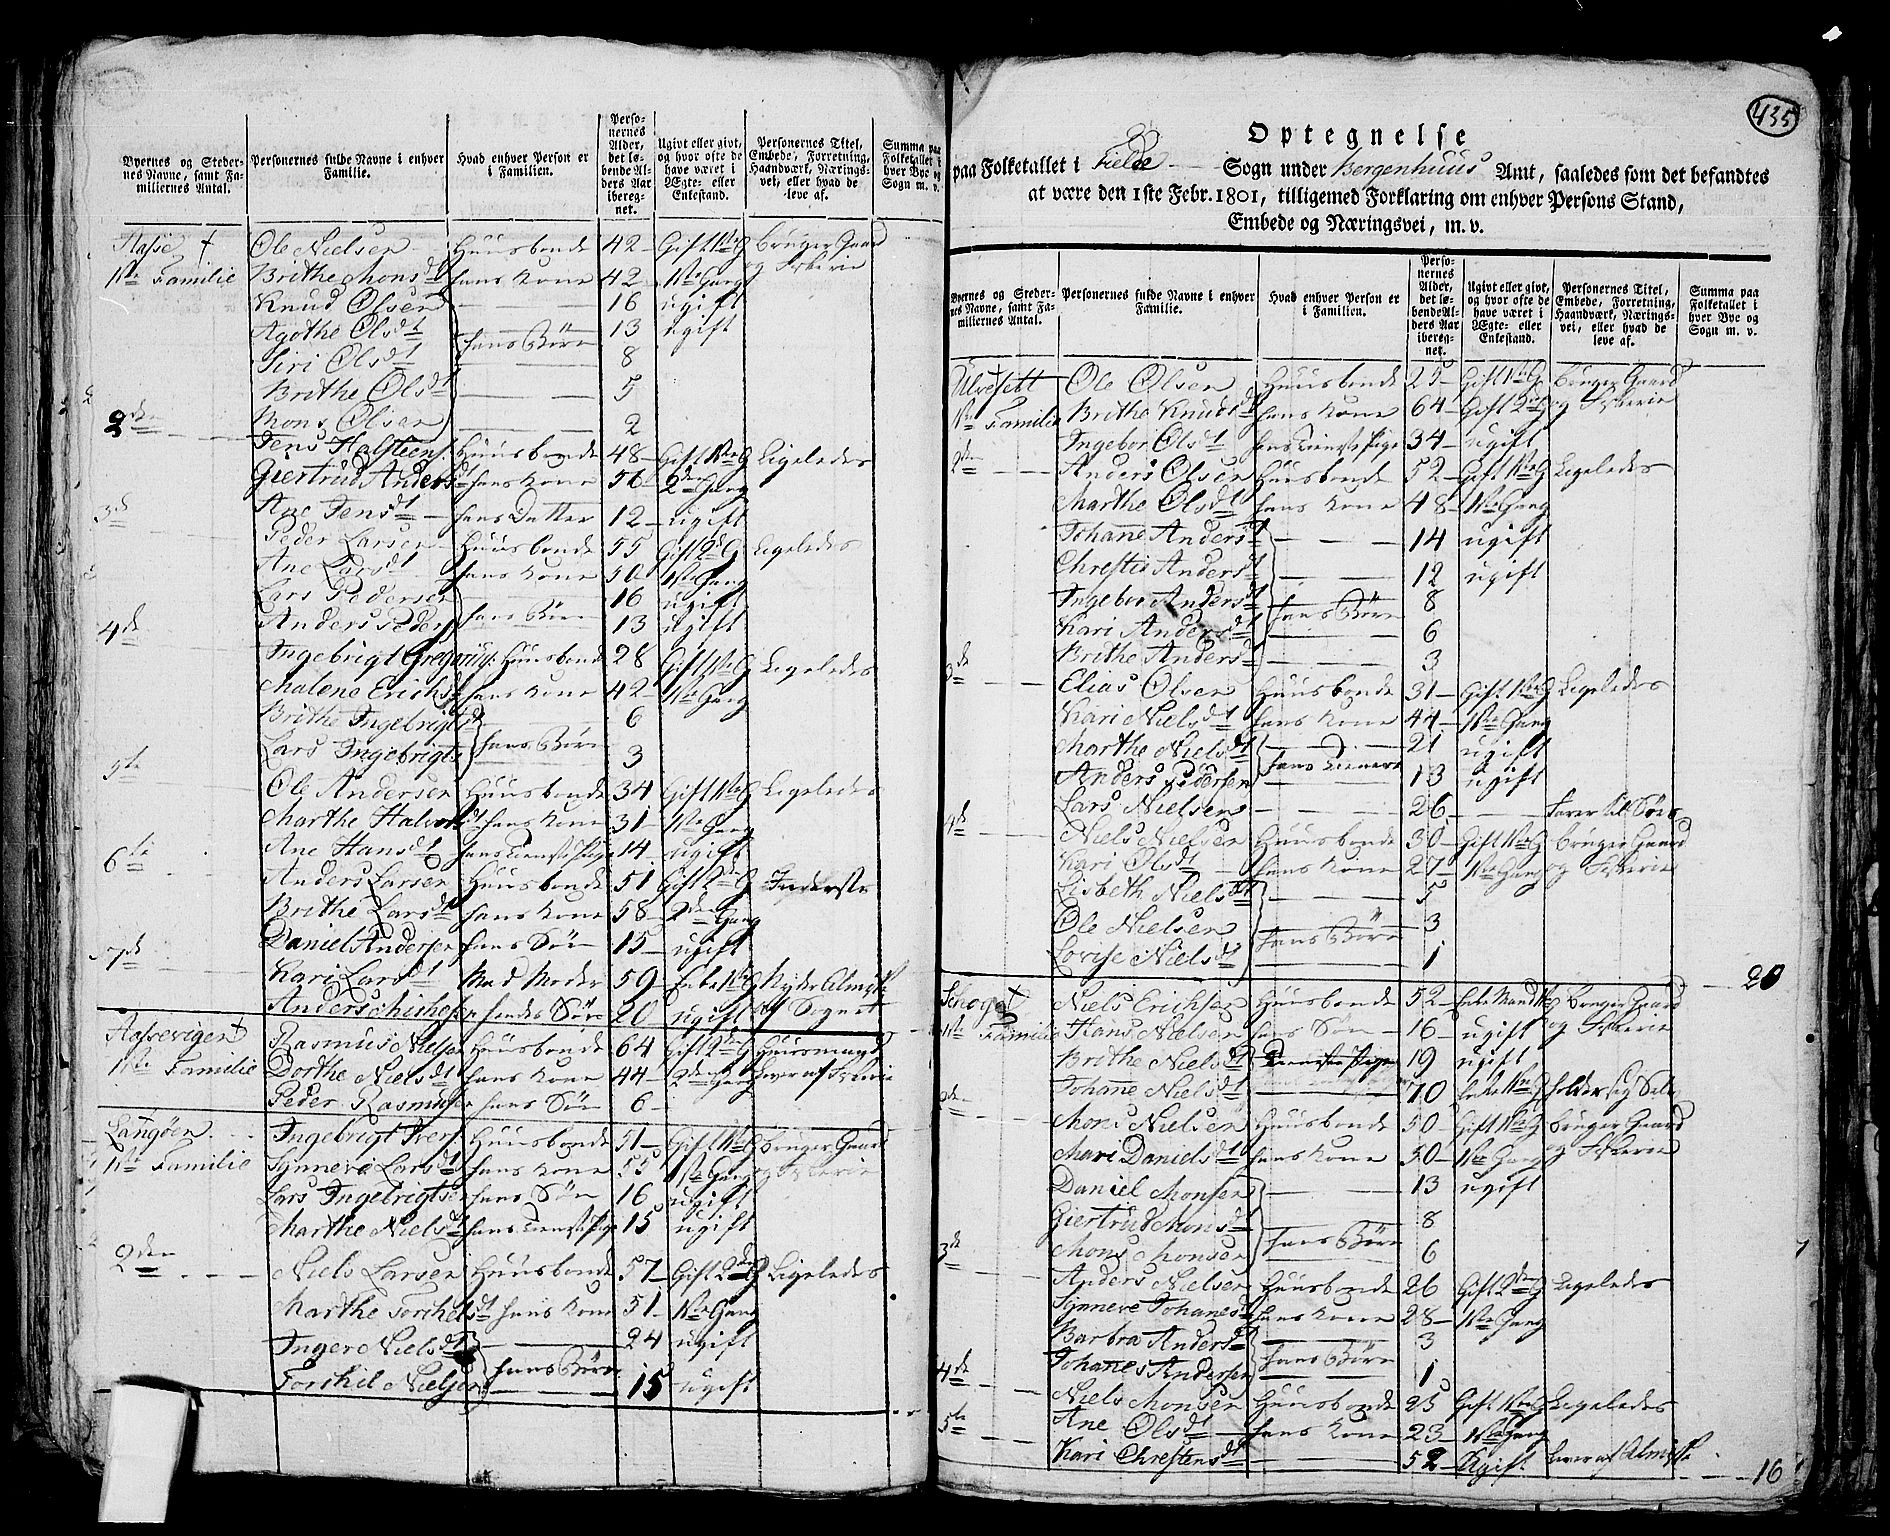 Byernes og Steder-
nes Navne, samt Fa-
miliernes Antal.
Personernes fulde Navne i enhver
Familie.
Hvad enhver Person er
i Familien.
Perso-
nernes
Alder,
det lø-
bende Al-
ders Aar
iberég-
net.
Ugivt eller givt,
og hvor ofte de
have været i
Ægte- eller
Enkestand.
Personernes Titel,
Embede, Forretning,
Haandværk, Nærings-
vei, eller hvad de
leve af.
Summa paa
Folketallet i
hver Bye og
Sogn m. v.
Ole Nielsen Huusbonde 42 Gift 1ste G bruger Gaard
1ste Familie Brithe Monsdt hans Kone 42 1ste Gang og Fiskerie
Knud Olsen 16 ugift
Agothe Olsdt hans Børn 13 ugift
Siri Olsdt 8
Brithe Olsdt 5
2den Mons Olsen 2
Jens Halsteens. Huusbonde 48 Gift 1ste G Ligeledes
Giertrud Andersdt hans Kone 56 2den Gang
3de Ane Jensdt hans Datter 12 ugift
Peder Larsen Huusbonde 55 Gift 2d G Ligeledes
Ane Larsdt hans Kone 50 1ste Gang
Lars Pedersen hans Børn 16 ugift
4de Anders Peders 13 ugift
Ingebrigt Gregorius: Huusbonde 28 Gift 1ste G Ligeledes
Malene Erichsdt hans Kone 42 1ste Gang
Brithe Ingebrigtsd hans Børn 6
Lars Ingebrigts 3
5te
Ole Andersen Huusbonde 34 Gift 1ste G Ligeledes
Marthe Halvorsdt hans Kone 31 1ste Gang
6te Ane Hansdt hans Tieneste Pige 14 ugift
Anders Larsen Huusbonde 51 Gift 2d G Inderste
Brithe Larsdt hans Kone 58 2den Gang
7de Daniel Andersen hans Søn 15 ugift
Kari Larsdt Mad Moder 59 Enke 1ste G Nyder Almisse
Anders hendes Søn 20 ugift af Sognet
Aassevigen Rasmus Nielsen Huusbonde 64 Gift 2den G Huusmand
1ste Familie Dorthe Nielsdt hans Kone 44 2den Gang lever af Fiskerie
Peder Rasmusen hans Søn 6
Langøen Ingebrigt Ivers. Huusbonde 51 Gift 1ste G bruger Gaard
1ste Familie Synneve Larsdt hans Kone 55 1ste Gang og Fiskerie
Lars Ingebrigtsen hans Søn 16 ugift
Marthe Nielsdt hans Tieneste Pige 15 ugift
2den Niels Larsen Huusbonde 57 Gift 2den G Ligeledes
Marthe Torchelsdt hans Kone 51 1ste Gang
Inger Nielsdt hans Børn 24 ugift
Torchil Nielsen 15 ugift
435
Optegnelse
paa Folketallet i Fielde Sogn under Bergenhuus Amt, saaledes som det befandtes
at være den 1ste Febr. 1801, tilligemed Forklaring om enhver Persons Stand,
Embede og Næringsvei, m. v.
Byernes og Steder-
nes Navne, samt Fa-
miliernes Antal.
Personernes fulde Navne i enhver
Familie.
Hvad enhver Person er
i Familien.
Perso-
nernes
Alder,
det lø-
bende Al-
ders Aar
iberég-
net.
Ugivt eller givt,
og hvor ofte de
have været i
Ægte- eller
Enkestand.
Personernes Titel,
Embede, Forretning,
Haandværk, Nærings-
vei, eller hvad de
leve af.
Summa paa
Folketallet i
hver Bye og
Sogn m. v.
Ulvesett Ole Olsen Huusbonde 25 Gift 1ste G bruger Gaard
1ste Familie Brithe Knudsdt hans Kone 64 Gift 2den G og Fiskerie
Ingebor Olsdt hans Tieneste Pige 34 ugift
2den Anders Olsen Huusbonde 52 Gift 1ste G Ligeledes
Marthe Olsdt hans Kone 48 1ste Gang
Johane Andersdt 14 ugift
Chrestie Andersdt 12 ugift
Ingebor Andersdt hans Børn 8
Kari Andersdt 6
Brithe Andersdt 3
3de Elias Olsen Huusbonde 31 Gift 1ste G Ligeledes
Kari Nielsdt hans Kone 44 1ste Gang
Marthe Nielsdt hans Tienere 21 ugift
Anders Pedersen 13 ugift
Lars Nielsen 26 farer til Søes
4de Niels Nielsen Huusbonde 30 Gift 1ste G bruger Gaard
Kari Olsdt hans Kone 27 1ste Gang og Fiskerie
Lisbeth Nielsdt 5
Ole Nielsen hans Børn 3
Lovise Nielsdt 1
20
Niels Erichsen Huusbonde 52 Enke Mand 1ste G bruger Gaard
1ste Familie Hans Nielsen hans Søn 16 ugift og Fiskerie
Brithe Nielsdt Tieneste Pige 19 ugift
Johane Nielsdt 70 Enke 1ste G holder sig Selv
2den Mons Nielsen Huusbonde 50 Gift 1ste G bruger Gaard
Mari Danielsdt hans Kone 50 1ste Gang og Fiskerie
Daniel Monsen 13 ugift
Giertrud Monsdt hans Børn 8
3de Mons Monsen 6
Anders Nielsen Huusbonde 26 Gift 2den G Ligeledes
Synneve Johanesdt hans Kone 28 1ste Gang
Barbra Andersdt hans Børn 3
4de Johanes Andersen 1
Niels Monsen Huusbonde 25 Gift 1ste G Ligeledes
5te Ane Olsdt hans Kone 23 1ste Gang
Kari Chrestensdt 52 Ugift lever af Almisse
16